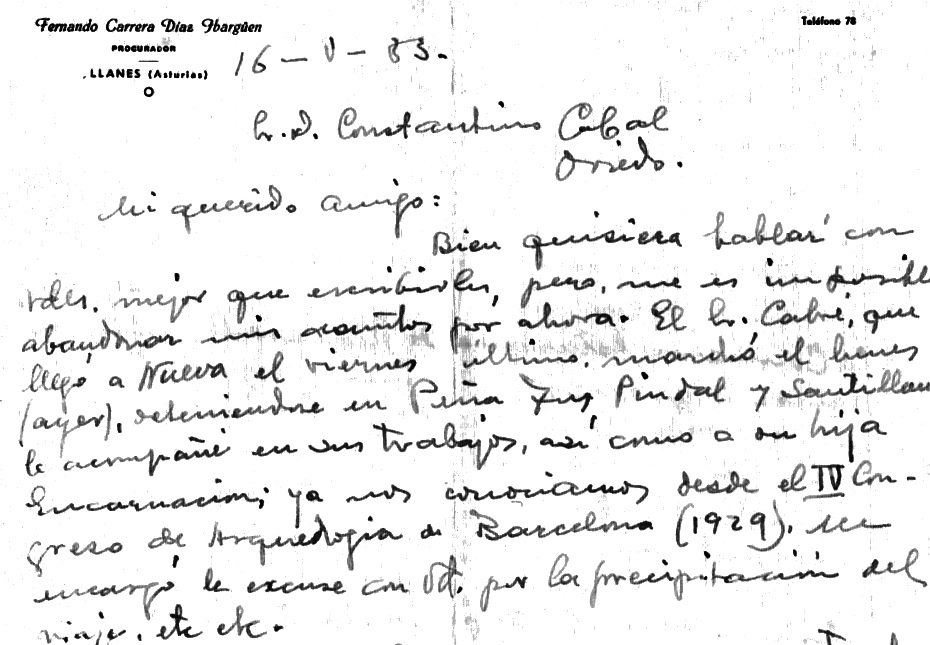 Fernando Carrera Díaz Ibargüen
PROCURADOR
LLANES (Asturias)
Teléfono 78
16 - V - 53.
Sr. D. Constantino Cabal
Oviedo.
Mi querido amigo:
Bien quisiera hablar con
Vdes. mejor que escribirles, pero, me es imposible
abandonar mis asuntos por ahora. El Sr. Cabré, que
llegó a Nueva el viernes último, marchó el lunes
(ayer), deteniendose en Peña Tu, Pindal y Santillan
le acompañé en sus trabajos, así como a su hija
Encarnación; ya nos conociamos desde el IV Con-
greso de Arqueologia de Barcelona (1929). me
encargó le excuse con Vd. por la precipitación del
viaje, etc etc.